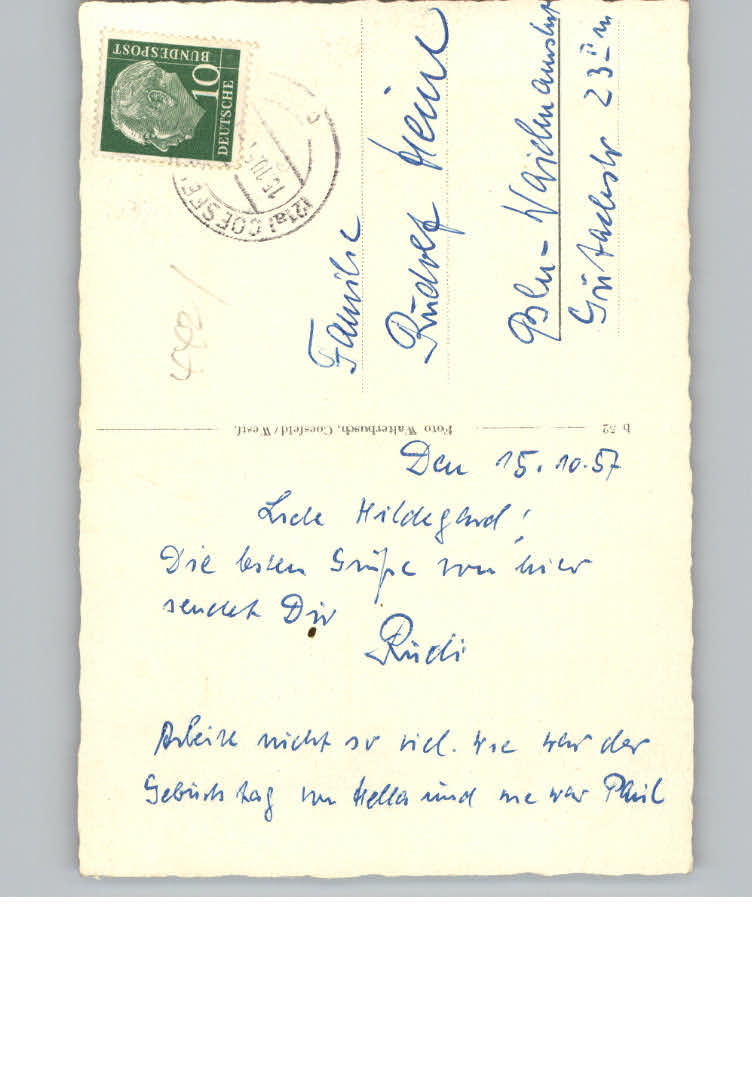 Den 15.10.57
Liebe Hildegard!
Die besten Grüße von hier
sendet Dir
Rudi
Arbeite nicht so viel. Wie war der
Geburtstag von Hella und wie war
Familie
Rudolf Heine
Bln-
23
DEUTSCHE
BUNDESPOST
10
(21a) COESFE
15.10.5
b 52
Foto Walterbusch, Coesfeld/Westf.